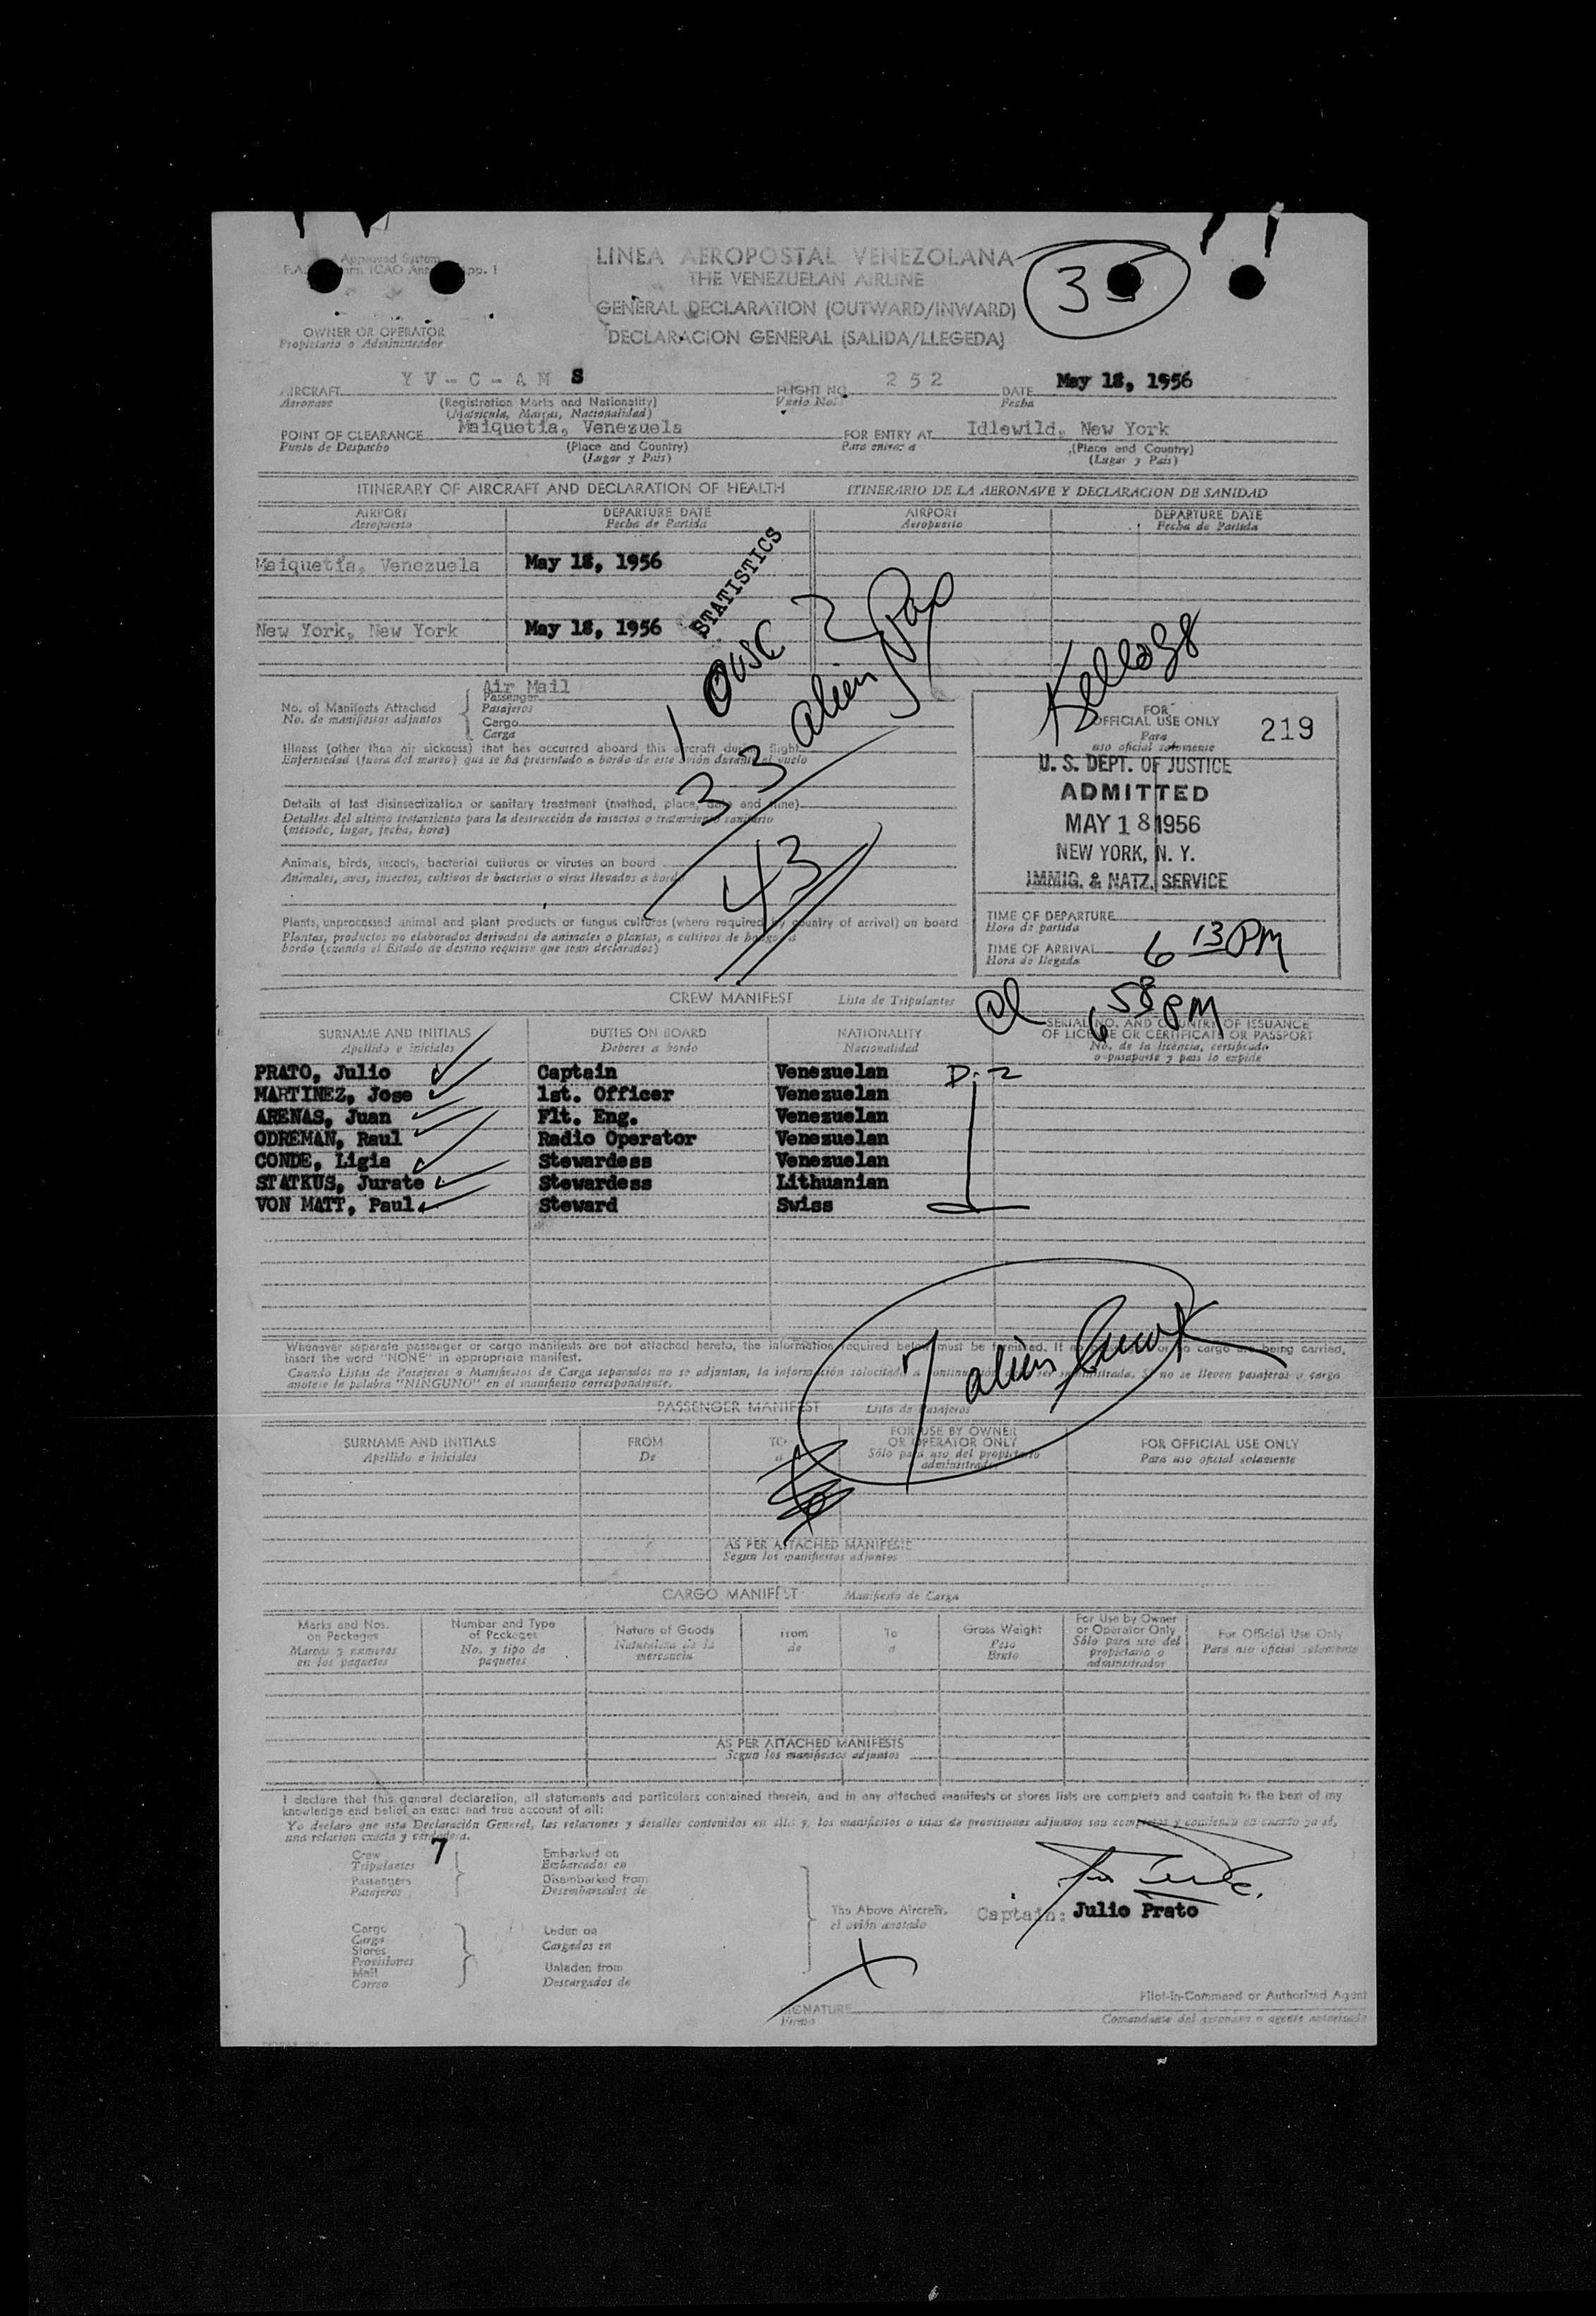 Approved System
LINEA AEROPOSTAL VENEZOLANA
THE VENEZUELAN AIRLINE
GENERAL DECLARATION (OUTWARD/INWARD)
DECLARACION GENERAL (SALIDA/LLEGEDA)
35
OWNER OR OPERATOR
Propietario o Administrador
AIRCRAFT YV-C-AMS FLIGHT NO. 252 DATE May 18, 1956
Aeronave (Registration Marks and Nationality) Vuelo No. Fecha
(Matricula, Marcas, Nacionalidad)
POINT OF CLEARANCE Maiquetia, Venezuela FOR ENTRY AT Idlewild, New York
Punto de Despacho (Place and Country) Para entrar a (Place and Country)
(Lugar y Pais) (Lugar y Pais)
ITINERARY OF AIRCRAFT AND DECLARATION OF HEALTH ITINERARIO DE LA AERONAVE Y DECLARACION DE SANIDAD
AIRPORT DEPARTURE DATE AIRPORT DEPARTURE DATE
Aeropuerto Fecha de Partida Aeropuerto Fecha de Partida
Maiquetia, Venezuela May 18, 1956
New York, New York May 18, 1956
STATISTICS
33 alien
43
Kellogg
Air Mail
No. of Manifests Attached Passenger
No. de manifiestos adjuntos Pasajeros
Cargo
Carga
Illness (other than air sickness) that has occurred aboard this aircraft during flight
Enfermedad (fuera del mareo) que se ha presentado a bordo de este avión durante el vuelo
Details of last disinsectization or sanitary treatment (method, place, date and time)
Detalles del ultimo tratamiento para la destrucción de insectos o tratamiento sanitario
(método, lugar, fecha, hora)
Animals, birds, insects, bacterial cultures or viruses on board
Animales, aves, insectos, cultivos de bacterias o virus llevados a bordo
Plants, unprocessed animal and plant products or fungus cultures (where required by country of arrival) on board
Plantas, productos no elaborados derivados de animales o plantas, o cultivos de hongos a
bordo (cuando el Estado de destino requiere que sean declarados)
FOR
OFFICIAL USE ONLY 219
Para
uso oficial solamente
U. S. DEPT. OF JUSTICE
ADMITTED
MAY 18 1956
NEW YORK, N. Y.
IMMIG. & NATZ. SERVICE
TIME OF DEPARTURE
Hora de partida
TIME OF ARRIVAL 6 13 PM
Hora de llegada
6 58 PM
CREW MANIFEST Lista de Tripulantes
SURNAME AND INITIALS DUTIES ON BOARD NATIONALITY SERIAL NO. AND COUNTRY OF ISSUANCE
Apellido e iniciales Deberes a bordo Nacionalidad OF LICENSE OR CERTIFICATE OR PASSPORT
No. de la licencia, certificado
o pasaporte y pais lo expide
PRATO, Julio Captain Venezuelan D-2
MARTINEZ, Jose 1st. Officer Venezuelan
ARENAS, Juan Flt. Eng. Venezuelan
ODREMAN, Raul Radio Operator Venezuelan
CONDE, Ligia Stewardess Venezuelan
STATKUS, Jurate Stewardess Lithuanian
VON MATT, Paul Steward Swiss
7 alien
Whenever separate passenger or cargo manifests are not attached hereto, the information required below must be furnished. If no or no cargo are being carried,
insert the word "NONE" in appropriate manifest.
Cuando Listas de Pasajeros o Manifiestos de Carga separados no se adjuntan, la información solicitada a continuación ser suministrada. Si no se lleven pasajeros o carga
anótese la palabra "NINGUNO" en el manifiesto correspondiente.
PASSENGER MANIFEST Lista de Pasajeros
SURNAME AND INITIALS FROM TO FOR USE BY OWNER FOR OFFICIAL USE ONLY
Apellido e iniciales De a OR OPERATOR ONLY Para uso oficial solamente
Sólo para uso del propietario
administrador
AS PER ATTACHED MANIFESTS
Segun los manifiestos adjuntos
CARGO MANIFEST Manifiesto de Carga
Marks and Nos. Number and Type Nature of Goods From To Gross Weight For Use by Owner For Official Use Only
on Packages of Packages Naturaleza de la de a Peso or Operator Only Para uso oficial solamente
Marcas y números No. y tipo de mercancia Bruto Sólo para uso del
en los paquetes paquetes propietario o
administrador
AS PER ATTACHED MANIFESTS
Segun los manifiestos adjuntos
I declare that this general declaration, all statements and particulars contained therein, and in any attached manifests or stores lists are complete and contain to the best of my
knowledge and belief an exact and true account of all:
Yo declaro que esta Declaración General, las relaciones y detalles contenidos en ella y, los manifiestos o istas de provisiones adjuntos son completos y
una relacion exacta y verdadera.
Crew 7 Embarked on
Tripulantes Embarcados en
Passengers Disembarked from
Pasajeros Desembarcados de
The Above Aircraft. Captain: Julio Prato
el avión anotado
Cargo Laden on
Carga Cargados en
Stores
Provisiones Unladen from
Mail Descargados de
Correo
Pilot-in-Command or Authorized Agent
SIGNATURE
Firma Comandante del aeronave o agente autorizado